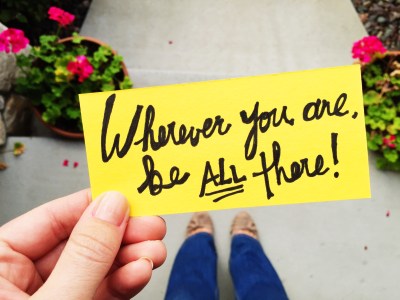 Wherever you are,
be ALL there!